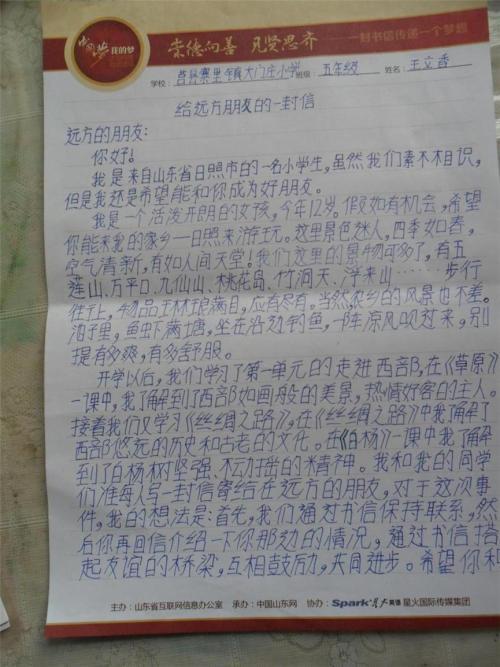 中国梦 我的梦
崇德向善 见贤思齐 一封书信传递一个梦想
学校:莒县寨里镇大门庄小学 班级:五年级 姓名:王立香
给远方朋友的一封信
远方的朋友:
你好!
我是来自山东省日照市的一名小学生,虽然我们素不相识,
但是我还是希望能和你成为好朋友。
我是一个活泼开朗的女孩,今年12岁。假如有机会,希望
你能来我的家乡—日照来游玩。这里景色迷人,四季如春,
空气清新,有如人间天堂!我们这里的景物可多了,有五
莲山、万平口、九仙山、桃花岛、竹洞天、浮来山……步行
街上,物品琳琅满目,应有尽有。当然农乡的风景也不差。
泊子里,鱼虾满塘,坐在岩边钓鱼,一阵凉风吹过来,别
提有多爽,有多舒服。
开学以后,我们学习了第一单元的走进西部,在《草原》
一课中,我了解到了西部如画般的美景,热情好客的主人。
接着我们又学习《丝绸之路》,在《丝绸之路》中我了解了
西部悠远的历史和古老的文化。在《白杨》一课中我了解
到了白杨树坚强、不动摇的精神。我和我的同学
们准每人写一封信寄给在远方的朋友,对于这次事
件,我的想法是:首先,我们通过书信保持联系,然
后你再回信介绍一下你那边的情况,通过书信搭
起友谊的桥梁,互相鼓励,共同进步。希望你和
主办:山东省互联网信息办公室 承办:中国山东网 协办:Spark星火英语 星火国际传媒集团